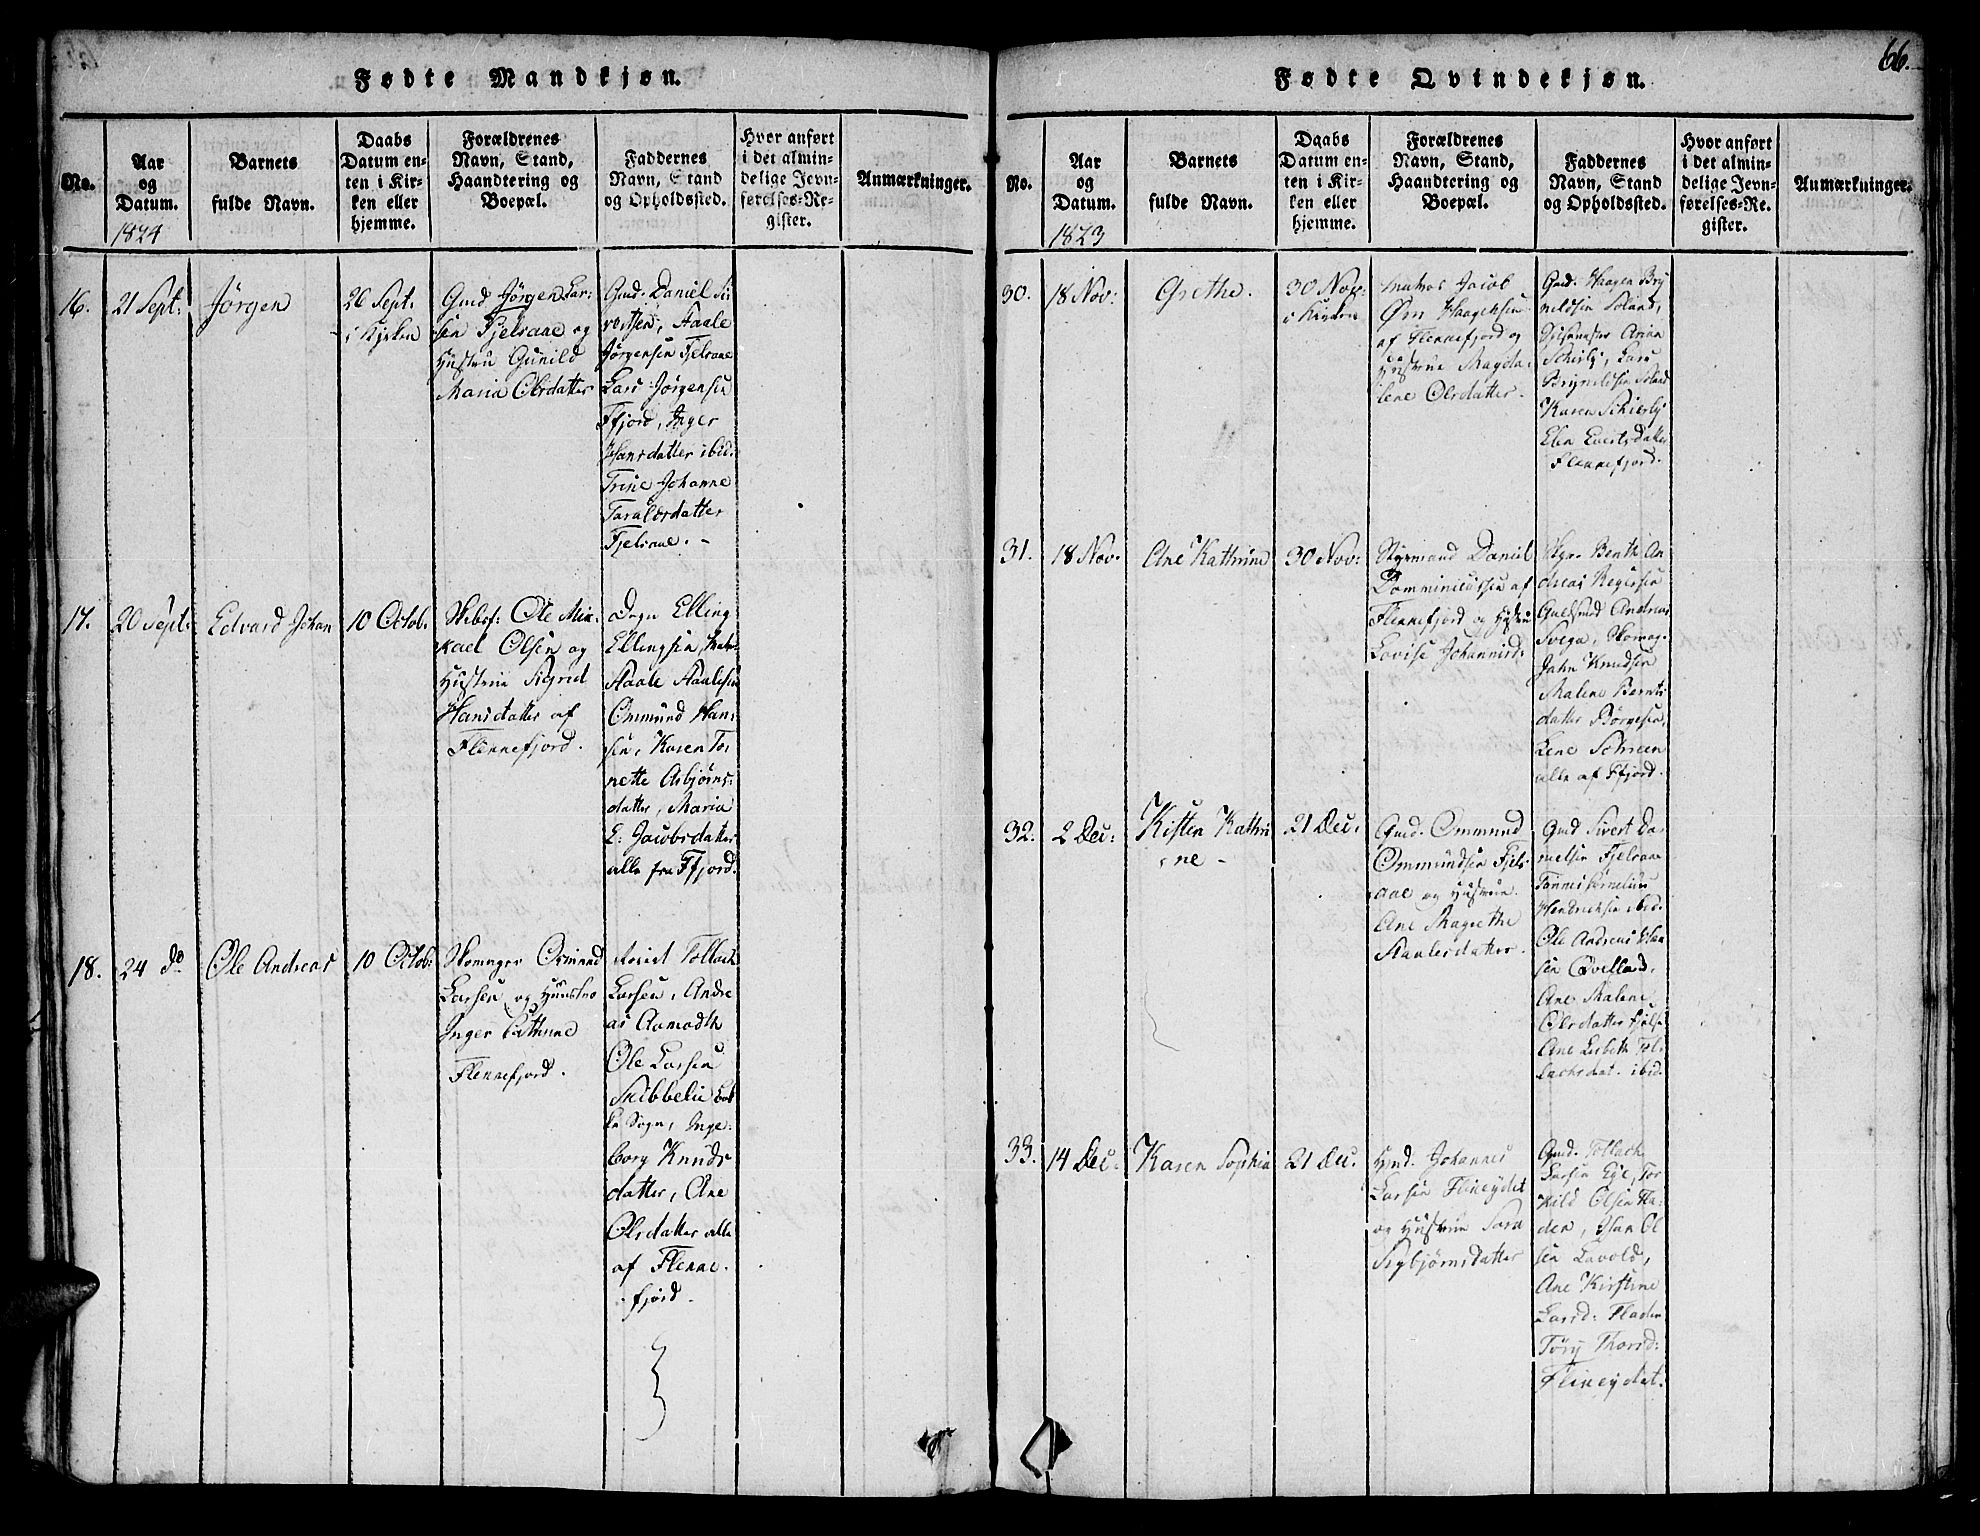 Fødte Mandkjøn.
No.
Aar
og
Datum.
Barnets
fulde Navn.
Daabs
Datum en-
ten i Kir-
ken eller
hjemme.
Forældrenes
Navn, Stand,
Haandtering og
Boepæl.
Faddernes
Navn, Stand
og Opholdssted.
Hvor anført
i det almin-
delige Jevn-
førelses-Re-
gister.
Anmærkninger.
1824
16.
21 Sept:
Jørgen
26 Sept.
i Kirken
Gmd Jørgen Lar-
sen Fjelsaae og
Hustru Gunild
Maria Olsdatter
Gmd. Daniel Si
vertsen, Staale
Jørgensen Fjelsaae
Lars Jørgensen
Ffjord, Inger
Hansdatter ibid:
Trine Johanne
Taraldsdatter
Fjelsaae. -
17.
20 Sept:
Edvard Johan
10 Octob.
Ole Mik-
kael Olsen og
Hustrue Sigrid
Hansdatter af
Flennefjord.
Elling
Ellingsen,
Staale Staalesen
Ommund Han-
sen, Karen To
nette Asbjørns-
datter, Maria
E: Jacobsdatter
alle fra Ffjord.
18.
24 do
Ole Andreas
10 Octob:
Skomager Osmund
Larsen og Huustro
Inger Cathrine
Flennefjord.
Tollach
Larsen, Andre
as Aamodth
Ole Larsen
Skibbelie
Sogn, Inge-
borg Knuds
datter, Ane
Olsdatter alle
af Flenne-
fjord.
66.
Fødte Qvindekjøn.
No.
Aar
og
Datum.
Barnets
fulde Navn.
Daabs
Datum en-
ten i Kir-
ken eller
hjemme.
Forældrenes
Navn, Stand,
Haandtering og
Boepæl.
Faddernes
Navn, Stand
og Opholdssted.
Hvor anført
i det almin-
delige Jevn-
førelses-Re-
gister.
Anmærkninger.
1823
30.
18 Nov:
Grethe.
30 Nov:
i Kirken
Matros Jacob
Øm Haagensen
af Flennefjord og
Hustrue Magda-
lene Olsdatter.
Gmd. Haagen Bry
nildsen
Lars
Brynildsen
Karen
Elen Evertsdatter
Flennefjord.
31.
18 Nov:
Ane Kathrine
30 Nov:
Styrmand Daniel
Dominicussen af
Flennefjord og Hustru
Lovise Johannesd:
Skpr. Benth An
dreas Regersen
Guldsmed Andreas
Svega, Skomag.
Jahn Knudsen
Malene Bernts
datter Børgesen,
Lene
alle af Ffjord.
32.
2 Dec:
Kisten Kathri
-ne -
21 Dec:
Gmd. Ommund
Ommundsen Fjels-
aae og Hustrue
Ane Magrethe
Staalesdatter.
Gmd Sivert Da-
nielsen Fjelsaae
Hendrichsen ibid.
Ole Andreas Han
sen Qvelland.
Ane Malene
Olsdatter
Ane Lisbeth Tol-
lachsdat. ibid.
33.
14 Dec:
Karen Sophia
21 Dec.
Hmd. Johannes
Larsen Flineydet
og Hustrue Sara
Sigbjørnsdatter
Gmd. Tollach
Larsen Eye, Tor
kild Olsen Fla-
den, Ol
sen Lavold,
Ane Kirstine
Larsd: Fladen
Tørj Thorsd:
Flineydet.